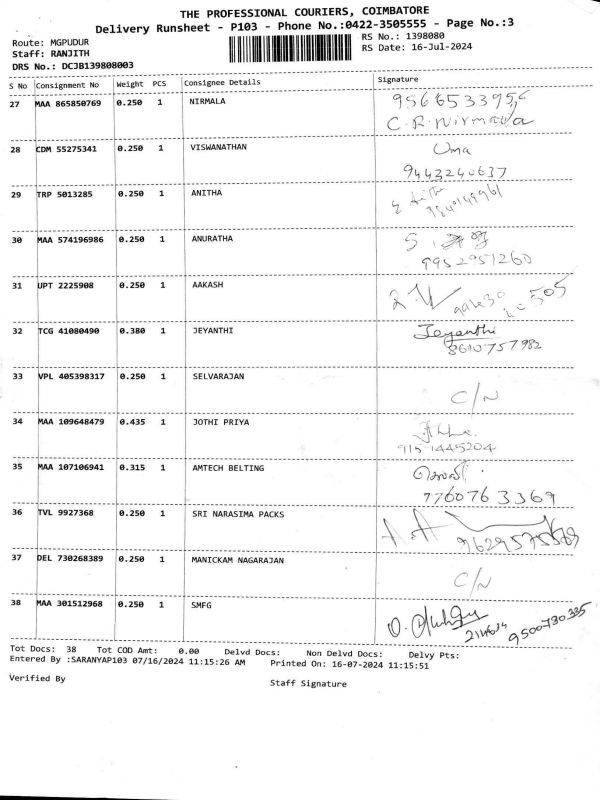 THE PROFESSIONAL COURIERS, COIMBATORE
Delivery Runsheet - P103 - Phone No.:0422-3505555 - Page No.:3
Route: MGPUDUR
RS No.: 1398080
Staff: RANJITH
RS Date: 16-Jul-2024
DRS No.: DCJB139808003
S No Consignment No Weight PCS Consignee Details Signature
27 MAA 865850769 0.250 1 NIRMALA
C.R.Nirmala
28 CDM 55275341 0.250 1 VISWANATHAN Uma
9443240637
29 TRP 5013285 0.250 1 ANITHA
30 MAA 574196986 0.250 1 ANURATHA
9952951260
31 UPT 2225908 0.250 1 AAKASH
32 TCG 41080490 0.380 1 JEYANTHI Jeyanthi
8610757982
33 VPL 405398317 0.250 1 SELVARAJAN
C/N
34 MAA 109648479 0.435 1 JOTHI PRIYA
9151445204
35 MAA 107106941 0.315 1 AMTECH BELTING
7760763369
36 TVL 9927368 0.250 1 SRI NARASIMA PACKS
37 DEL 730268389 0.250 1 MANICKAM NAGARAJAN
C/N
38 MAA 301512968 0.250 1 SMFG
9500730335
Tot Docs: 38 Tot COD Amt: 0.00 Delvd Docs: Non Delvd Docs: Delvy Pts:
Entered By :SARANYAP103 07/16/2024 11:15:26 AM Printed On: 16-07-2024 11:15:51
Verified By
Staff Signature